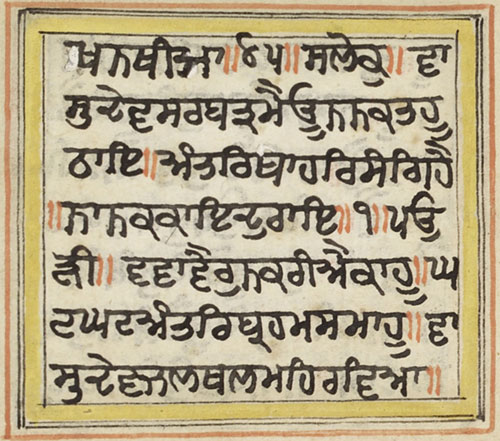 ਖਨਥੀਆ॥੪੫॥ਸਲੋਕੁ॥ਵਾ
ਸੁਦੇਵਸਰਬਤ੍ਰਮੈਊਨਨਕਤਹੂ
ਠਾਇ॥ਅੰਤਰਿਬਾਹਰਿਸੰਗਿਹੈ
॥ਨਾਨਕਕਾਇਦੁਰਾਇ॥੧॥ਪਉ
ੜੀ॥ਵਵਾਵੈਰੁਨਕਰੀਐਕਾਹੂ॥ਘ
ਟਘਟਅੰਤਰਿਬ੍ਰਹਮਸਮਾਹੂ॥ਵਾ
ਸੁਦੇਵਜਲਥਲਮਹਿਰਵਿਆ॥